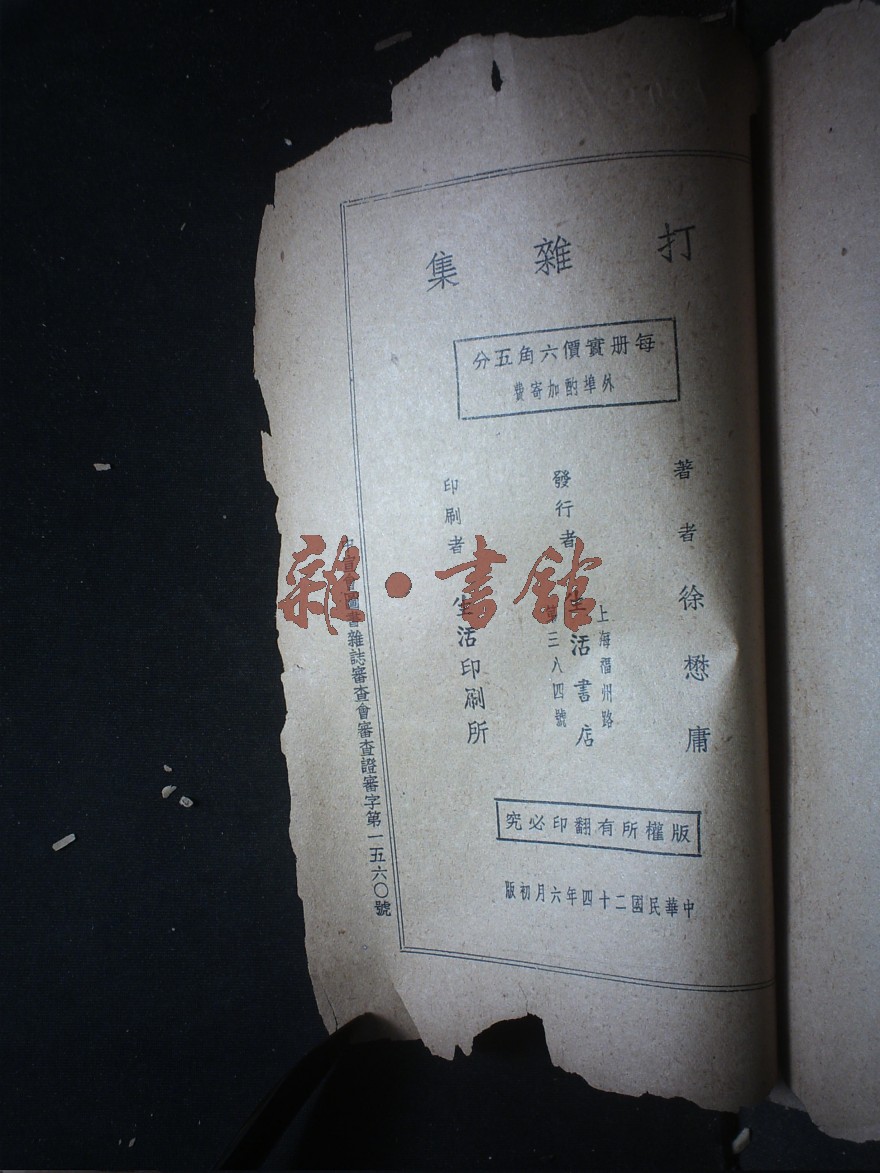 打雜集
每册實價六角五分
外埠酌加寄費
著者 徐懋庸
發行者 生活書店
上海福州路
第三八四號
印刷者 生活印刷所
版權所有翻印必究
中華民國二十四年六月初版
圖書雜誌審查會審查證審字第一五六〇號
雜·書館